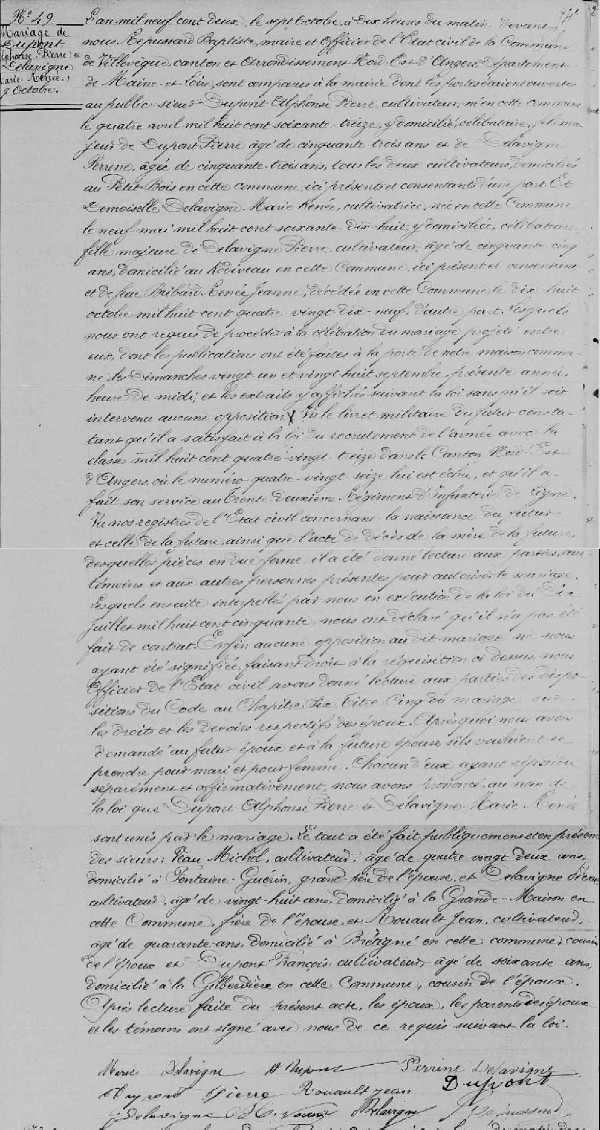 No 49
Mariage de
Dupont
Alphonse Pierre
et
Delavigne
Marie Renée
7 Octobre.
L'an mil neuf cent deux, le sept Octobre, à dix heures du matin, devant
nous Repussard Baptiste, maire et Officier de l'Etat civil de la Commune
de Villevêque, canton et Arrondissement Nord-Est d'Angers, département
de Maine-et-Loire, sont comparus à la mairie dont les portes étaient ouvertes
au public: sieur Dupont Alphonse Pierre, cultivateur, né en cette commune
le quatre avril mil huit cent soixante-treize, y domicilié, célibataire, fils ma-
jeur de Dupont Pierre âgé de cinquante trois ans et de Delavigne
Perrine, âgée de cinquante trois ans, tous les deux cultivateurs, domiciliés
au Petit-Bois en cette Commune, ici présents et consentants d'une part. Et
Demoiselle Delavigne Marie Renée, cultivatrice, née en cette Commune
le neuf mai mil huit cent soixante-dix-huit, y domiciliée, célibataire,
fille majeure de Delavigne Pierre, cultivateur, âgé de cinquante cinq
ans, domicilié au en cette Commune, ici présent et consentant
et de feue Renée Jeanne, décédée en cette Commune le dix huit
octobre mil huit cent quatre-vingt-dix-neuf, d'autre part. Lesquels
nous ont requis de procéder à la célébration du mariage projeté entre
eux, dont les publications ont été faites à la porte de notre maison commu-
ne, les Dimanches vingt un et vingt huit septembre, présente année,
heure de midi, et les extraits y affichés suivant la loi sans qu'il soit
intervenu aucune opposition. Vu le livret militaire du futur consta-
tant qu'il a satisfait à la loi du recrutement de l'armée avec la
classe mil huit cent quatre-vingt treize dans le Canton Nord-Est
d'Angers où le numéro quatre-vingt seize lui est échu, et qu'il a
fait son service au trente-deuxième Régiment d'Infanterie de ligne.
Vu nos registres de l'Etat civil concernant la naissance du futur
et celle de la future, ainsi que l'acte de décès de la mère de la future
desquelles pièces en due forme il a été donné lecture aux parties, aux
témoins et aux autres personnes présentes pour autoriser le mariage.
Lesquels ensuite interpellés par nous en exécution de la loi du Dix
Juillet mil huit cent cinquante nous ont déclaré qu'il n'a pas été
fait de contrat. Enfin aucune opposition au dit mariage ne nous
ayant été signifiée, faisant droit à la réquisition ci-dessus, nous
Officier de l'Etat civil avons donné lecture aux parties des dispo-
sitions du Code au Chapitre Six, Titre Cinq du mariage sur
les droits et les devoirs respectifs des époux. Après quoi nous avons
demandé au futur époux et à la future épouse s'ils voulaient se
prendre pour mari et pour femme. Chacun d'eux ayant répondu
séparément et affirmativement, nous avons prononcé au nom de
la loi que Dupont Alphonse Pierre et Delavigne Marie Renée
sont unis par le mariage. Le tout a été fait publiquement et en présence
des sieurs: Michel, cultivateur, âgé de quatre vingt deux ans
domicilié à Fontaine-Guérin, grand-père de l'épouse, et Delavigne Pierre
cultivateur, âgé de vingt-huit ans, domicilié à la Grande-Maison en
cette Commune, frère de l'épouse, et Rouault Jean, cultivateur,
âgé de quarante ans, domicilié à Brétigné en cette commune, cousin
de l'époux et Dupont François, cultivateur, âgé de soixante ans,
domicilié à la en cette Commune, cousin de l'époux.
Après lecture faite du présent acte, les époux, les parents des époux
et les témoins ont signé avec nous de ce requis suivant la loi.
Marie Delavigne A Dupont Perrine Delavigne
Pierre Rouault jean Dupont
Delavigne Delavigne Repussard